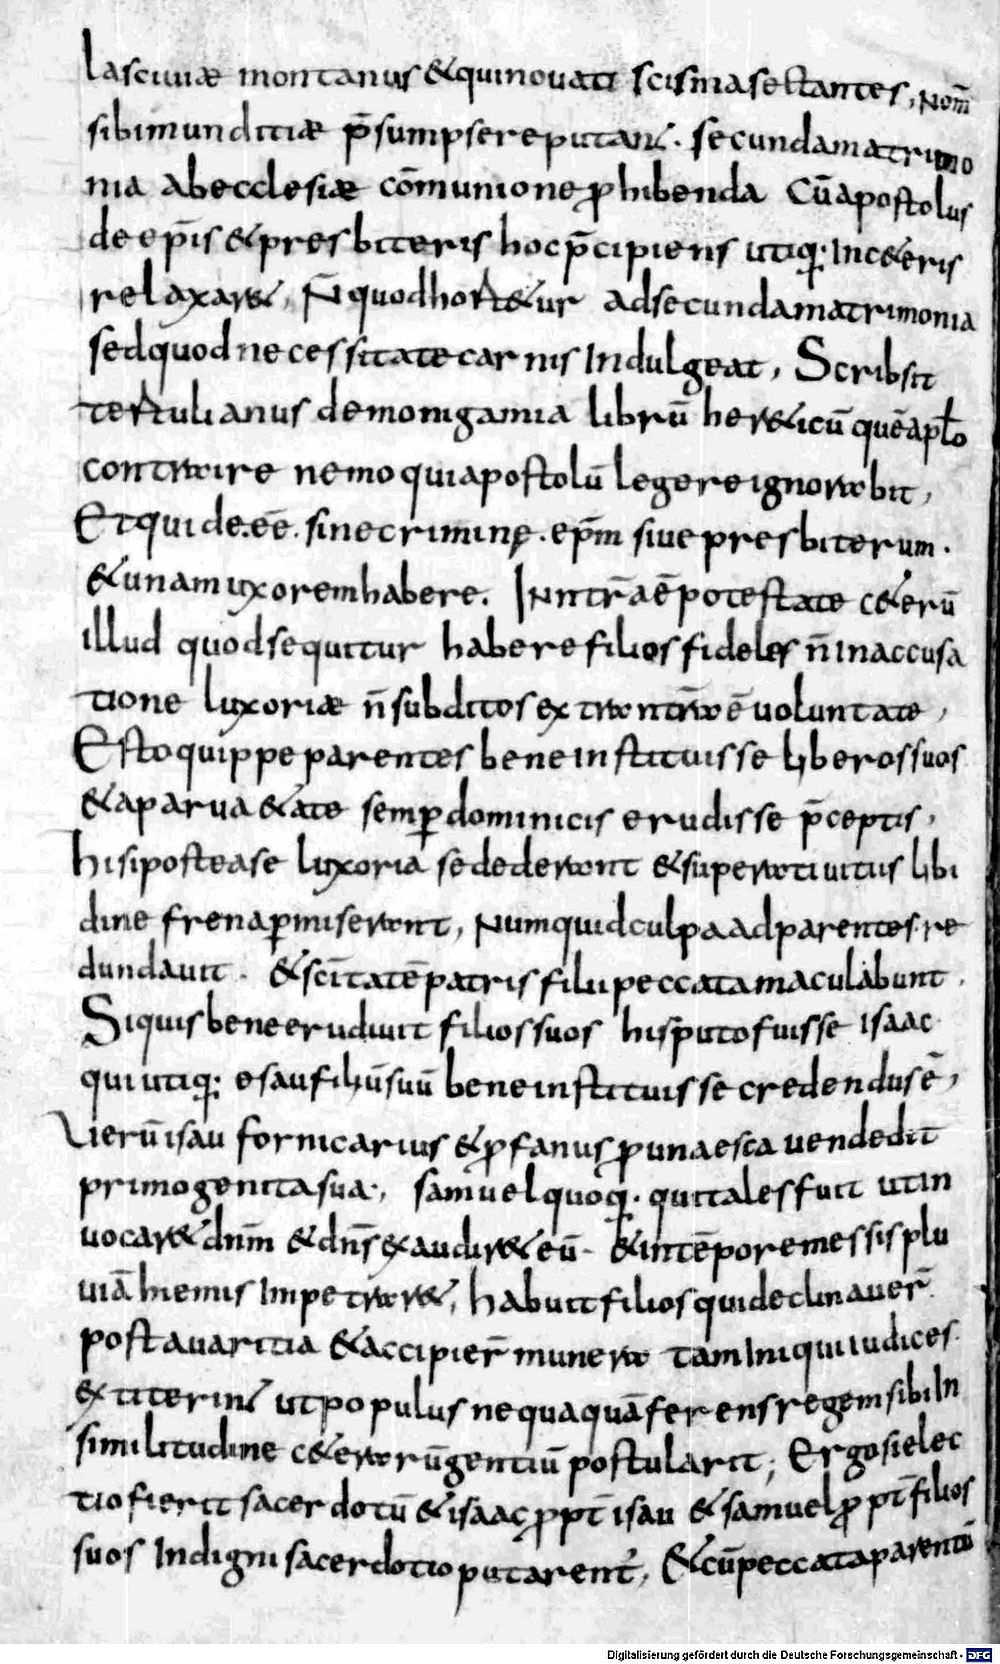 lasciuiæ montanus &quinouati scismasectantes, Nom̄
sibimunditiæ p̄sumpsereputant. secundamatrimo
nia abecclesiæ cōmunione ꝓhibenda Cūapostolus
deep̄is &presbiteris hocp̄cipiens utiq;. Inc&eris
relaxar&, N̄quodhort&ur adsecundamatrimonia
sedquodnecessitatecarnis Indulgeat, Scribsit
tertulianus demonigamia librū her&icū quēapƚo
contraire nemo quiapostolū legereignorabit,
Etquide.eē. sinecrimine. ep̄m siuepresbiterum.
&unamuxoremhabere. INnr̄aēpotestate c&erū
illud quodsequitur haberefiliosfideles n̄Inaccusa
tione luxoriæ n̄subditos ex trantr̄aē uoluntate,
Estoquippeparentes beneinstituisse liberossuos
&aparua&ate semꝑdominicis erudisse p̄ceptis,
hisipostease luxoria sedederant &superatiuitiis libi
dine frenaꝑmiserant, Numquidculpaadparentes.re
dundauit. &scītatēpatris filiipeccatamaculabunt.
Siquisbeneerudiuit filiossuos hisputofuisse isaac
quiutiq;. esaufiliūsuū beneinstituisse credendusē,
Uerūisau fornicarius &ꝓfanus ꝓunaesca uendedit
primogenitasua., samuelquoq;. quitalesfuit utin
uocar&dn̄m &dn̄sexaudir& eū. &intēporemessisplu
uiā hiemis Impetrar&, habuitfiliosquideclinauer̄.
postauaritia &accipier̄ munera tamIniquiiudices.
extiterint utpopulus nequaquāferensregemsibiIn
similitudine c&erarūgentiū postularit; Ergosielec
tiofierit sacerdotū &isaac ꝓpt̄ isau &samuel ꝓpt̄filios
suos Indigni sacerdotio putarent̄, &cūpeccataparentū
Digitalisierung gefördert durch die Deutsche Forschungsgemeinschaft - DFG